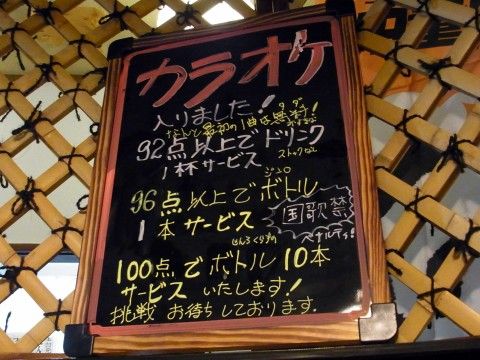 カラオケ
入りました!
なんと最初の1曲は無料!
92点以上でドリンク
1杯サービス
ストックなし
96点以上でボトル
1本サービス
国歌禁
ペナルティ!
100点でボトル10本
サービス いたします!
挑戦 お待ちしております.